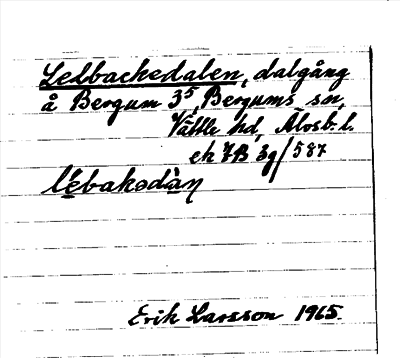 Ledbackedalen, dalgång
å Bergum 3⁵, Bergums sn,
Vättle hd, Älvsb. l.
ek 7B 3g/587
lèbakədàn
Erik Larsson 1965.